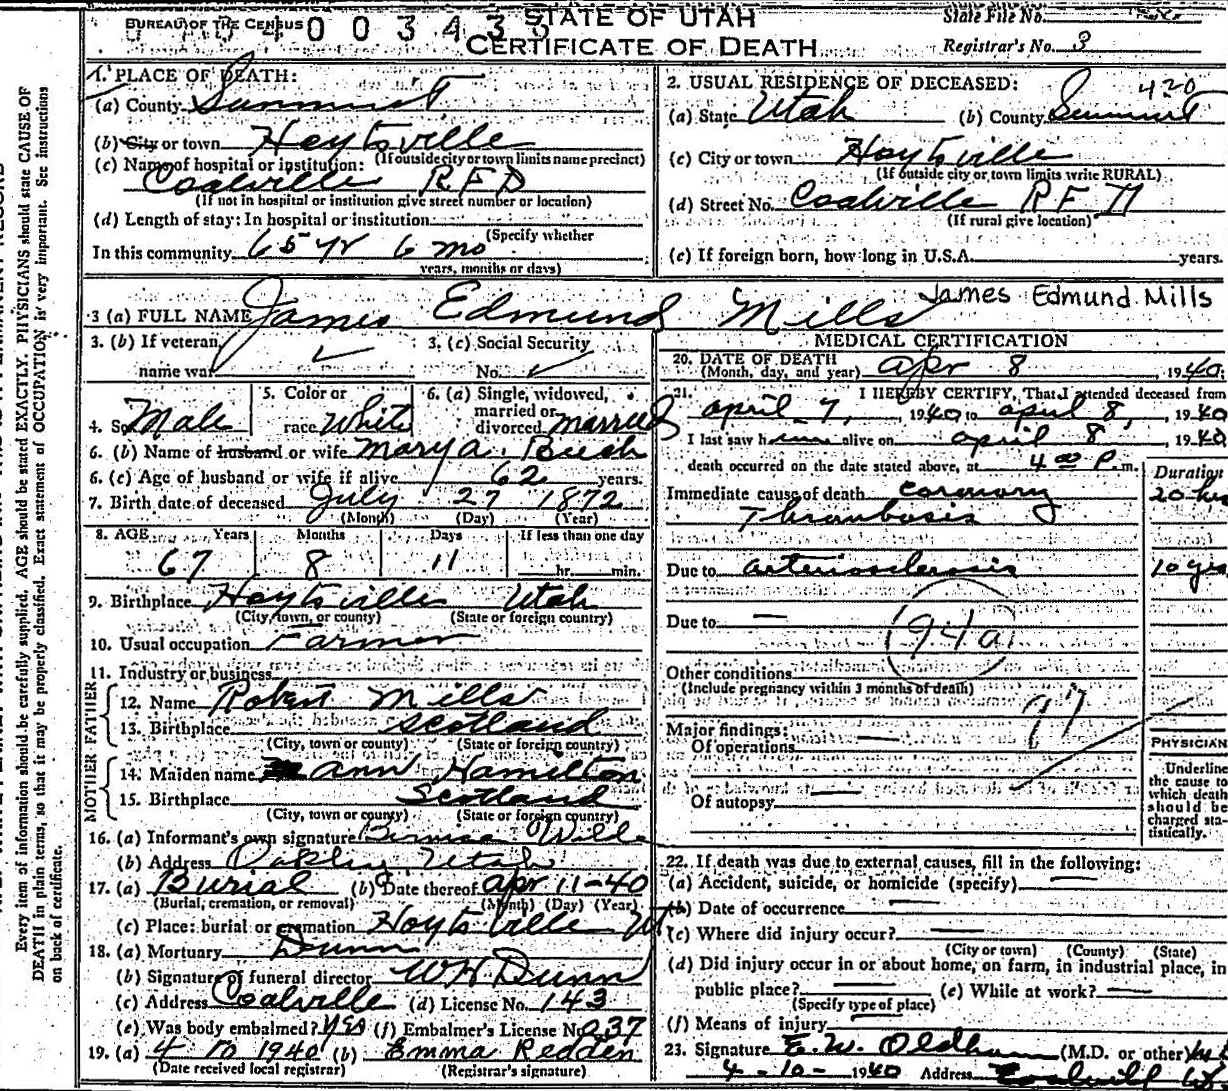 BUREAU OF THE CENSUS
STATE OF UTAH
CERTIFICATE OF DEATH
State File No.
Registrar's No. 3
1. PLACE OF DEATH:
(a) County Summit
(b) City or town Hoytsville
(If outside city or town limits name precinct)
(c) Name of hospital or institution:
Coalville RFD
(If not in hospital or institution give street number or location)
(d) Length of stay: In hospital or institution
(Specify whether
In this community 65 yr 6 mo
years, months or days)
2. USUAL RESIDENCE OF DECEASED:
420
(a) State Utah (b) County Summit
(c) City or town Hoytsville
(If outside city or town limits write RURAL)
(d) Street No. Coalville RFD
(If rural give location)
(e) If foreign born, how long in U.S.A. years.
3 (a) FULL NAME James Edmund Mills
James Edmund Mills
3. (b) If veteran, name war
3. (c) Social Security No.
4. Sex Male
5. Color or race White
6. (a) Single, widowed, married or divorced married
6. (b) Name of husband or wife Mary A.
6. (c) Age of husband or wife if alive 62 years.
7. Birth date of deceased July 27 1872
(Month) (Day) (Year)
8. AGE Years Months Days If less than one day
67 8 11 hr. min.
9. Birthplace Hoytsville Utah
(City, town, or county) (State or foreign country)
10. Usual occupation Farmer
11. Industry or business
FATHER
12. Name Robert Mills
13. Birthplace Scotland
(City, town or county) (State or foreign country)
MOTHER
14. Maiden name Ann Hamilton
15. Birthplace Scotland
(City, town or county) (State or foreign country)
16. (a) Informant's own signature
(b) Address Oakley Utah
17. (a) Burial (b) Date thereof Apr 11-40
(Burial, cremation, or removal) (Month) (Day) (Year)
(c) Place: burial or cremation Hoytsville Ut
18. (a) Mortuary Dunn
(b) Signature of funeral director W H Dunn
(c) Address Coalville (d) License No. 143
(e) Was body embalmed? yes (f) Embalmer's License No. 237
19. (a) 4 10 1940 (b) Emma Redden
(Date received local registrar) (Registrar's signature)
MEDICAL CERTIFICATION
20. DATE OF DEATH Apr 8, 1940.
(Month, day, and year)
21. I HEREBY CERTIFY, That I attended deceased from
April 7, 1940 to April 8, 1940
I last saw him alive on April 8, 1940
death occurred on the date stated above, at 4 00 P. m.
Duration
Immediate cause of death Coronary 20 hrs
Thrombosis
Due to arteriosclerosis 10 yrs
Due to —
94a
Other conditions
(Include pregnancy within 3 months of death)
97
Major findings:
Of operations —
Of autopsy —
PHYSICIAN
Underline
the cause to
which death
should be
charged sta-
tistically.
22. If death was due to external causes, fill in the following:
(a) Accident, suicide, or homicide (specify) —
(b) Date of occurrence —
(c) Where did injury occur? —
(City or town) (County) (State)
(d) Did injury occur in or about home, on farm, in industrial place, in
public place? — (e) While at work? —
(Specify type of place)
(f) Means of injury —
23. Signature E. W. Oldham (M.D. or other)
4-10-1940 Address Coalville Ut
Every item of information should be carefully supplied. AGE should be stated EXACTLY. PHYSICIANS should state CAUSE OF
DEATH in plain terms, so that it may be properly classified. Exact statement of OCCUPATION is very important. See instructions
on back of certificate.